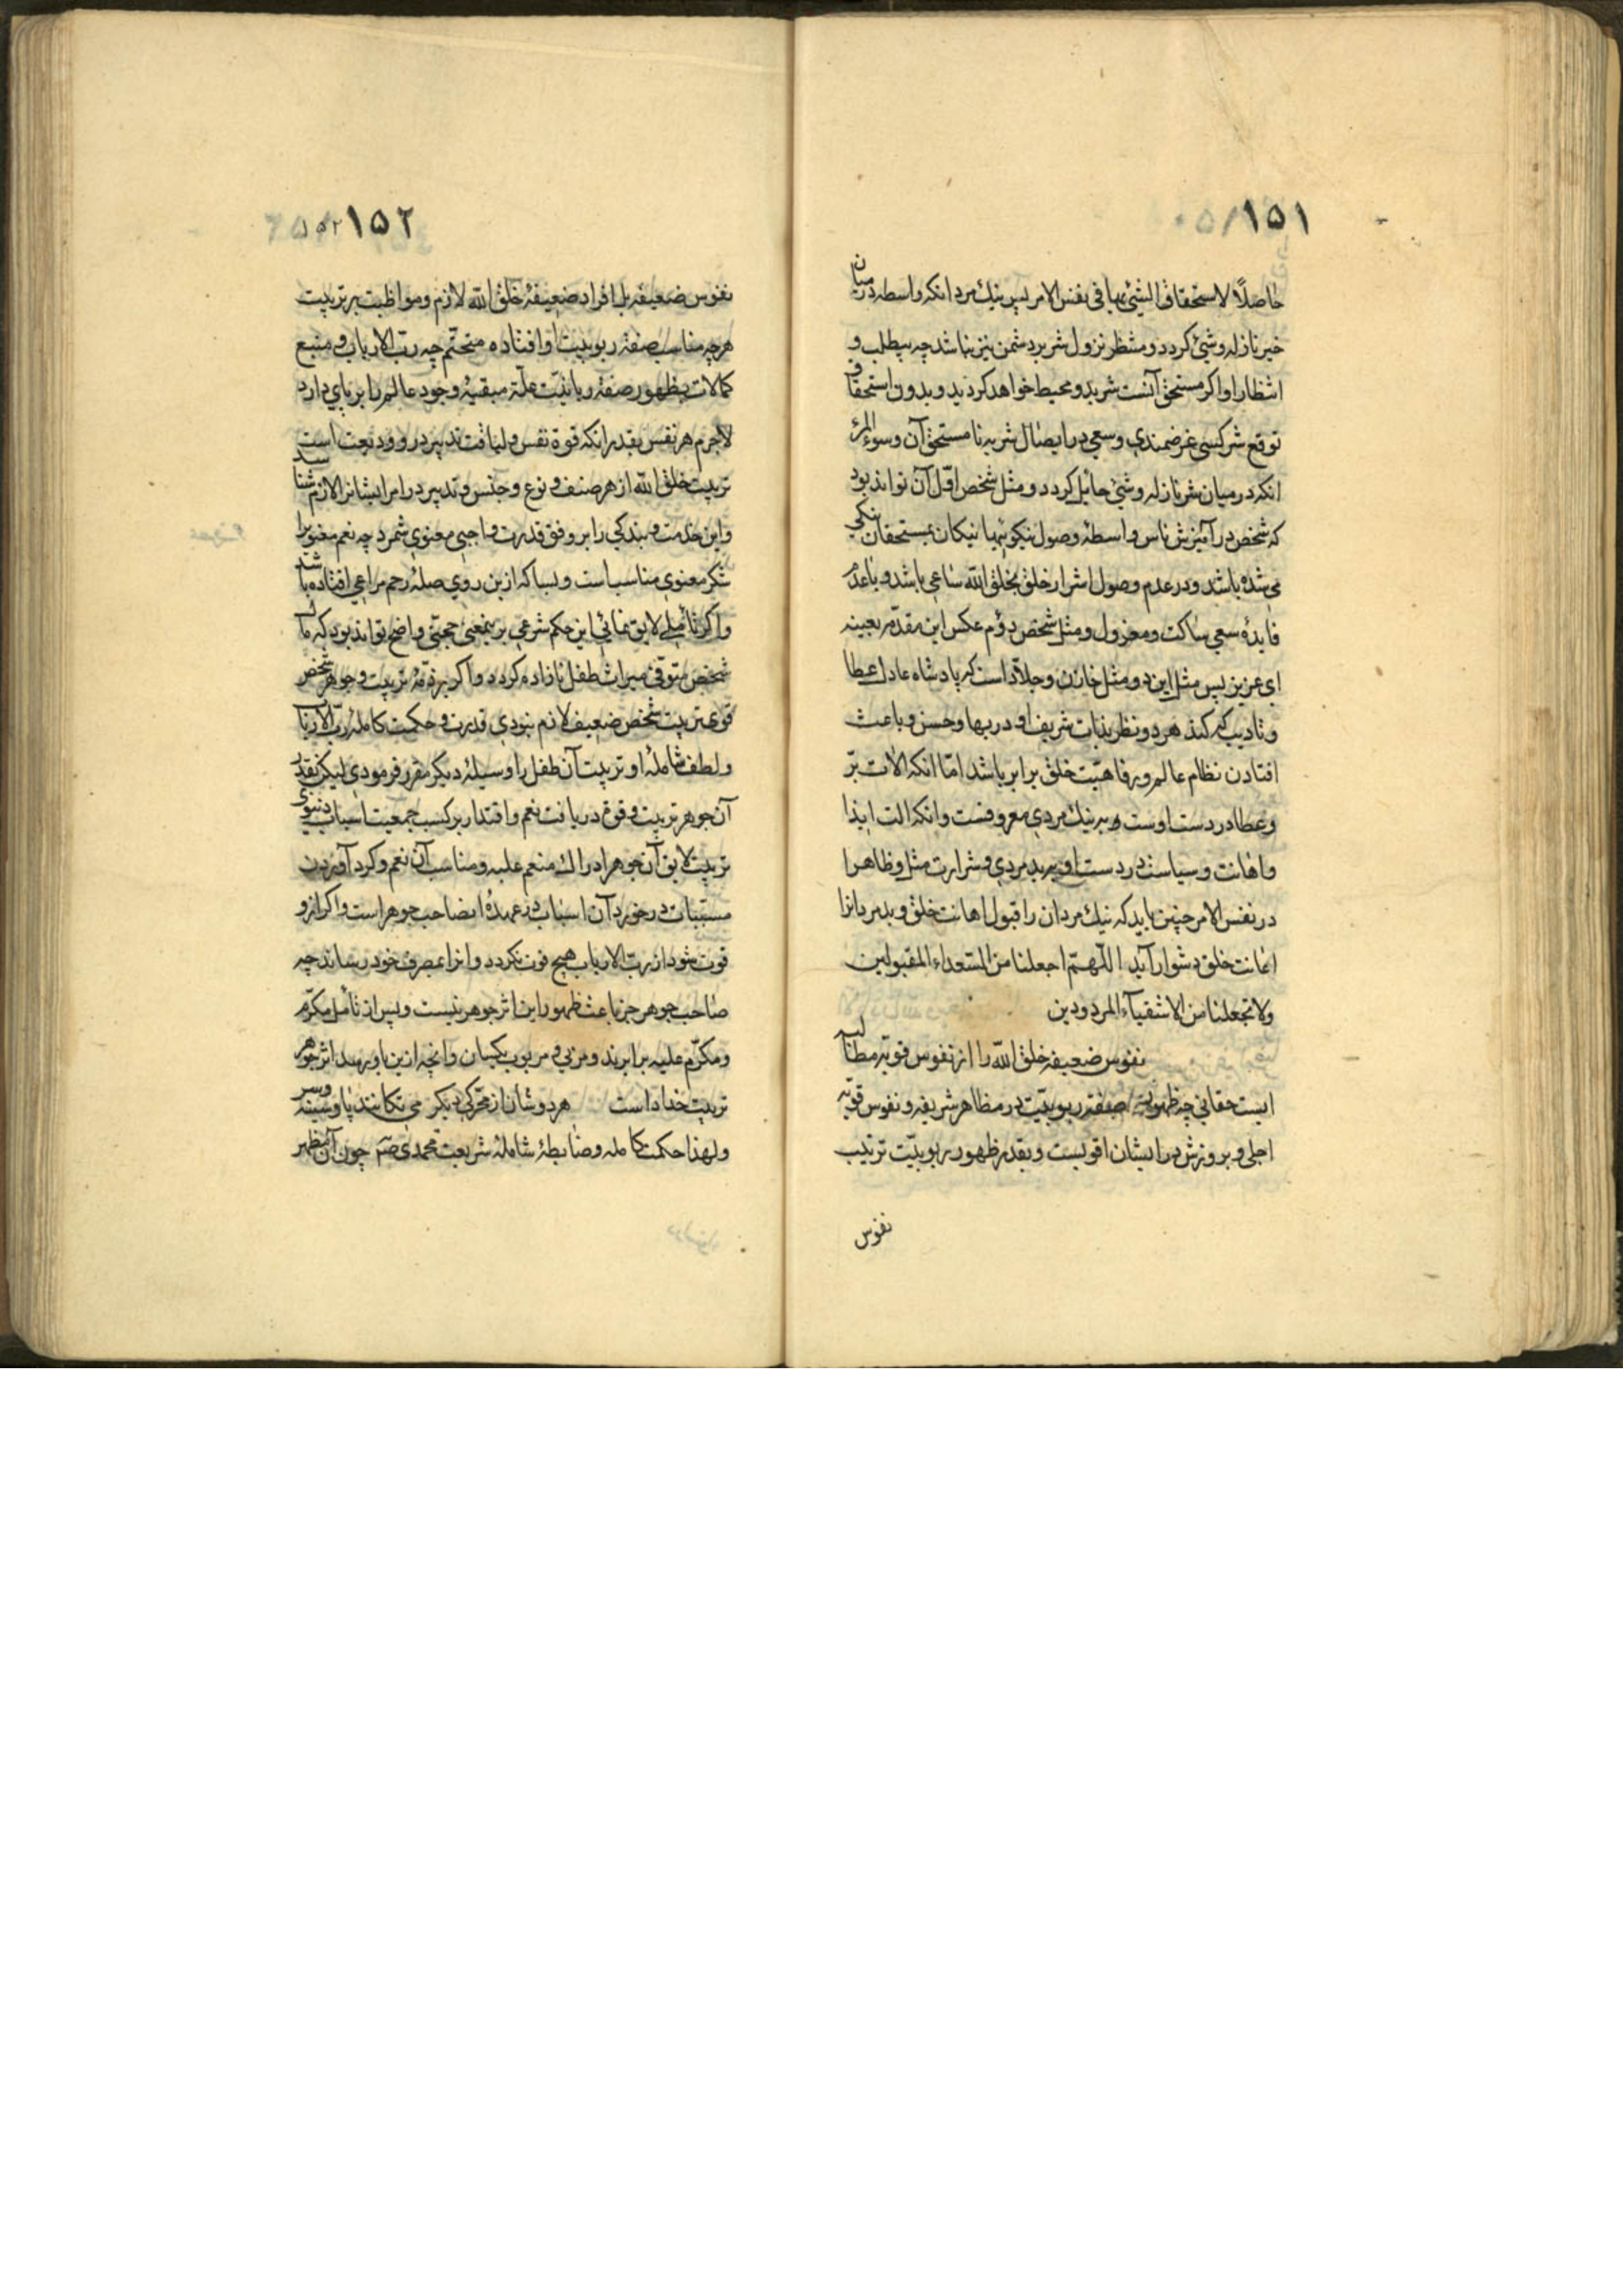 ١٥١
حاصلاً لاستحقاق الشئ بها فی نفس الامر پس نیك مرد انکه واسطه در میان
خیر نازله و شئ کردد و منتظر نزول شر بر دشمن نیز نباشد چه بیطلب و
انتظار او اکر مستحق آنست شر بدو محیط خواهد کردید و بدون استحقاق
توقع شر کسی غرضمندی و سعی در ایصال شر به نا مستحق آن و سوء المرئ
انکه در میان شر نازله و شئ حایل کردد و مثل شخص اوّل آن تواند بود
که شخص در آمیزش ناس واسطهٔ وصول نیکوئیها نیکان بمستحقان نیکی
می شده باشد و در عدم وصول اشرار خلق بخلق الله ساعی باشد و با عدم
فایدهٔ سعی ساکت و معزول و مثل شخص دوّم عکس این مقدّمه بعینه
ای عزیز پس مثل این دو مثل خازن و جلاّد است که پادشاه عادل اعطا
و تادیب که کند هر دو نظر بذات شریف او در بها و حسن و باعث
افتادن نظام عالم و رفاهیّت خلق برابر باشد امّا انکه الات برّ
و عطا در دست اوست به نیك مردی معروفست و انکه الت ایذا
و اهانت و سیاست در دست او به بد مردی و شرارت مثل و ظاهرا
در نفس الامر چنین باید که نیك مردان را قبول اهانت خلق و بد مردانرا
اعانت خلق دشوار آید اللّهمّ اجعلنا من السّعداء المقبولین
ولا تجعلنا من الاشقیآء المردودین
نفوس ضعیفهٔ خلق الله را از نفوس قویّه مطالبه
ایست حقانی چه ظهور صفة ربوبیّت در مظاهر شریفه و نفوس قویّه
اجلی و بروزش در ایشان اقویست و بقدر ظهور ربوبیّت ترتیب
نفوس
١٥٢ ١٥٢
نفوس ضعیفه بل افراد ضعیفهٔ خلق الله لازم و مواظبت بر تربیت
هر چه مناسب صفة ربوبیّت او افتاده متحتّم چه ربّ الارباب و منبع
کمالات بظهور صفة ربانیّت علّة مبقیهٔ وجود عالم را بر پای دارد
لاجرم هر نفس بقدر انکه قوة نفس و لیاقت تدبیر در و ودیعت است
تربیت خلق الله از هر صنف و نوع و جنس و تدبیر در امر ایشانرا لازم شناسد
و این خدمت و بندکی را بر وفق قدرت واجبی معنوی شمرد چه نعم معنویرا
شکر معنوی مناسب است و بسا که ازین روی صلهٔ رحم مراعی افتاده باشد
و اکر تأملی لایق نمائی این حکم شرعی بر ینمعنی حجتی واضح تواند بود که مال
شخص متوفّی میراث طفل نازاده کردد و اکر بر ذمّهٔ تربیت و جوهر شخص
قوی تربیت شخص ضعیف لازم نبودی قدرت و حکمت کامله ربّ الارباب
و لطف شاملهٔ او تربیت آن طفل را وسیلهٔ دیکر مقرر فرمودی لیکن بقدر
آن جوهر تربیت و قوة دریافت نعم و اقتدار بر کسب جمعیت اسباب دنیوی
تربیت لایق آن جوهر ادراك منعم علیه و مناسب آن نعم و کرد آوردن
مسببات در خورد آن اسباب در عهدهٔ انصاحب جوهر است و اکر از و
فوت شود از ربّ الارباب هیچ فوت نکردد و انرا بمصرف خود رساند چه
صاحب جوهر جز باعث ظهور این اثر جوهر نیست و پس از تأمل مکرّم
و مکرّم علیه برابرند و مربّی و مربوب یکسان و انچه ازین باو رسد اثر جوهر
تربیت خدا داست هر دو شان از محرّکی دیکر می تکانند پا و سینه و سر
و لهذا حکمت کامله و ضابطهٔ شاملهٔ شریعت محمدی صم چون آن مظهر